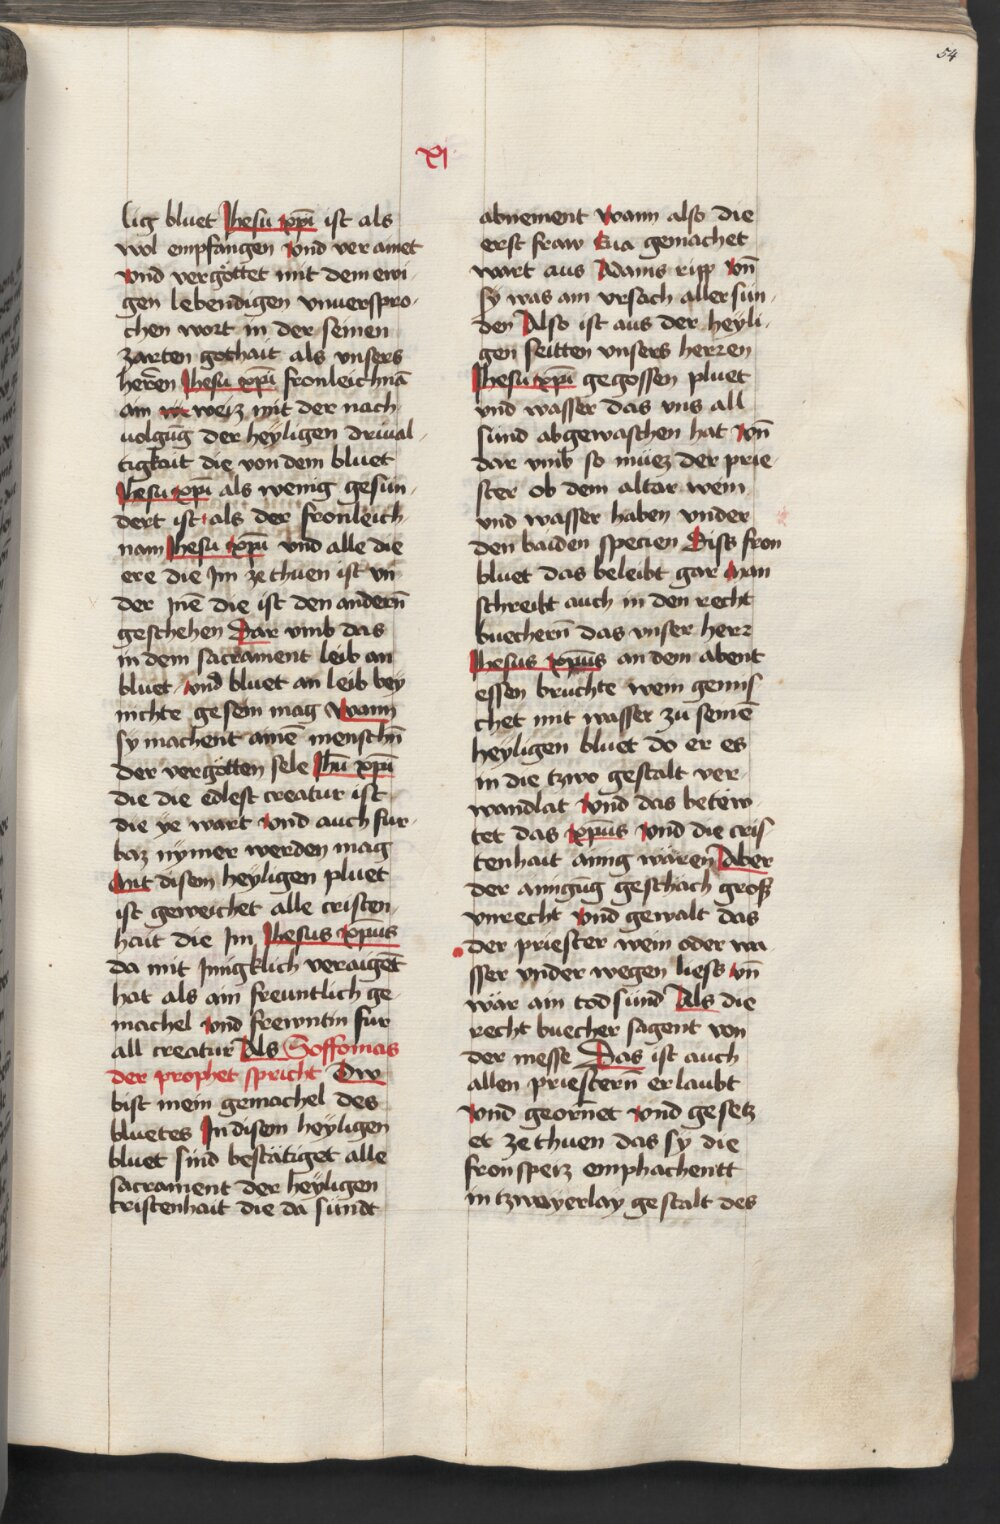 54
xj
lig bluet Jhesu xpī ist als
wol empfangen vnd ver ainet
vnd vergöttet mit dem ewi-
gen lebendigen vnuerspro-
chen wort in der seinen
zarten gothait als vnsers
herren Jhesu xpī fronleichnā
ain weiz mit der nach
uolgūg der heyligen drinal-
tigkait die von dem bluet
Jhesu xpī als wenig gesun-
dert ist als der fronleich-
nam Jhesu xpī vnd alle die
ere die Jm ze thuen ist vn-
der Jnē die ist den andern̄
geschehen Dar vmb das
in dem sacrament leib an
bluet vnd bluet an leib bey
nichte gesein mag Wann
sy machent ainē menschn̄
der vergötten sele Jhū xpī
die die edlest creatur ist
die ye wart vnd auch fur-
baz nymer werden mag
Mit disem heyligen pluet
ist geweichet alle cristen-
hait die Jm Jhesus xpūs
da mit Jnnigklich veraigēt
hat als ain freuntlich ge-
machel vnd frewntin fur
all creatur Als Soffonias
der prophet spricht Dw
bist mein gemachel des
bluetes Jn disem heyligen
bluet sind bestätiget alle
sacrament der heyligen
cristenhait die da sündt
abnement wann also die
erst fraw Eua gemachet
wart aus Adams ripp vn̄
sy was ain vrsach aller sün-
den Also ist aus der heyli-
gen seitten vnsers herren
Jhesu xpī gegossen pluet
vnd wasser das vns all
sünd abgewaschen hat vn̄
dar vmb so müez der prie-
ster ob dem altar wein
vnd wasser haben vnder
den baiden specien Diss fron
bluet das beleibt gar Man
schreibt auch in den recht
buechern̄ das vnser herr
Jhesus xpūs an dem abent
essen bruchte wein gemis-
chet mit wasser zu seinē
heyligen bluet do er es
in die tzwo gestalt ver-
wandlat vnd das betew-
tet das xpūs vnd die cris-
tenhait ainig wären Aber
der ainigūg geschach groß
vnrecht vnd gewalt das
der priester wein oder wa-
sser vnder wegen liess vn̄
wär ain tod sünd Als die
recht buecher sagent von
der messe Das ist auch
allen priestern̄ erlaubt
vnd georn̄et vnd gesetz-
et ze thuen das sy die
fronspeiz emphachentt
in tzwayerlay gestalt des